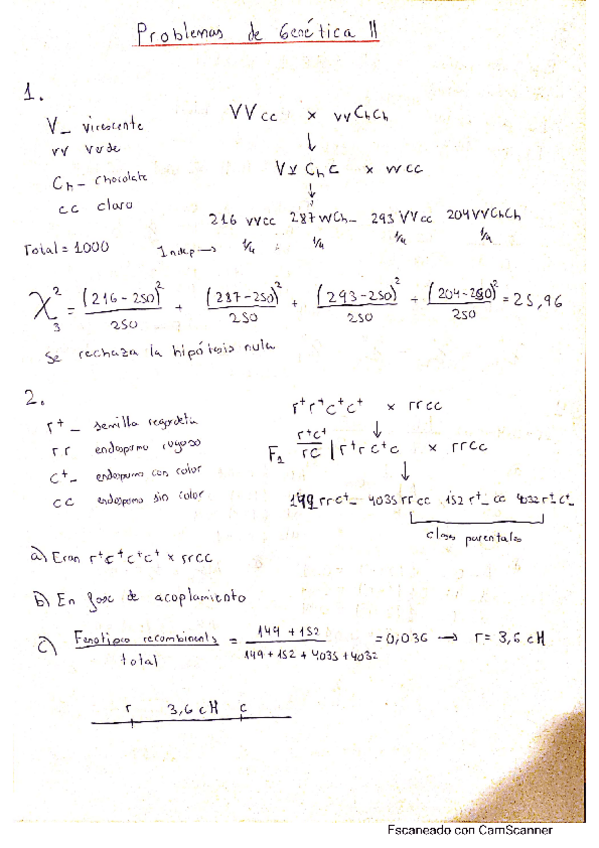 Problemas de Genética II
1.
V_ virescente
vv verde
Ch_ chocolate
cc claro
VVcc x vvChCh
↓
VvChc x vvcc
↓
216 vvcc 287 vvCh_ 293 VVcc 204 VVChCh
Total = 1000 Indep → 1/4 : 1/4 1/4 1/4
χ²₃ = (216-250)²/250 + (287-250)²/250 + (293-250)²/250 + (204-250)²/250 = 25,96
Se rechaza la hipótesis nula
2.
r⁺_ semilla regordeta
rr endospermo rugoso
c⁺_ endospermo con color
cc endospermo sin color
r⁺r⁺c⁺c⁺ x rrcc
↓
F₁ r⁺c⁺/rc | r⁺rc⁺c x rrcc
↓
149 rrc⁺_ 4035 rrcc 152 r⁺_cc 4032 r⁺_c⁺_
clases parentales
a) Eran r⁺c⁺c⁺c⁺ x rrcc
b) En fase de acoplamiento
c) Fenotipos recombinants/total = 149 + 152/149 + 152 + 4035 + 4032 = 0,036 → r = 3,6 cM
r 3,6 cM c
Escaneado con CamScanner